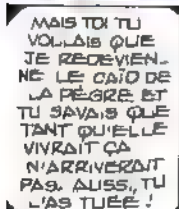 MAIS TOI TU
VOULAIS QUE
JE REDEVIEN-
NE LE CAÏD DE
LA PÈGRE ET
TU SAVAIS QUE
TANT QU'ELLE
VIVRAIT ÇA
N'ARRIVERAIT
PAS. AUSSI, TU
L'AS TUÉE !